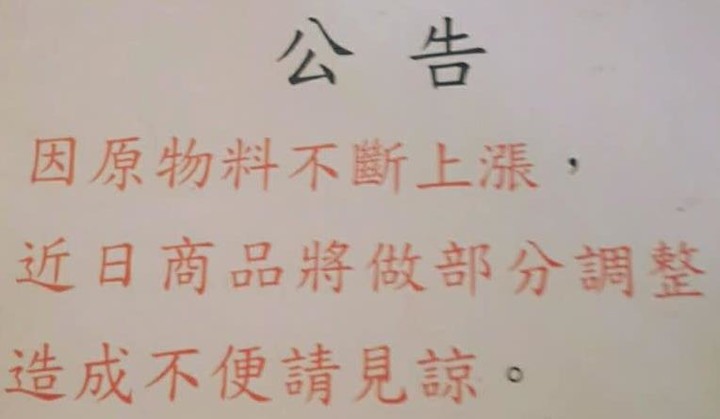 公告
因原物料不斷上漲，
近日商品將做部分調整
造成不便請見諒。